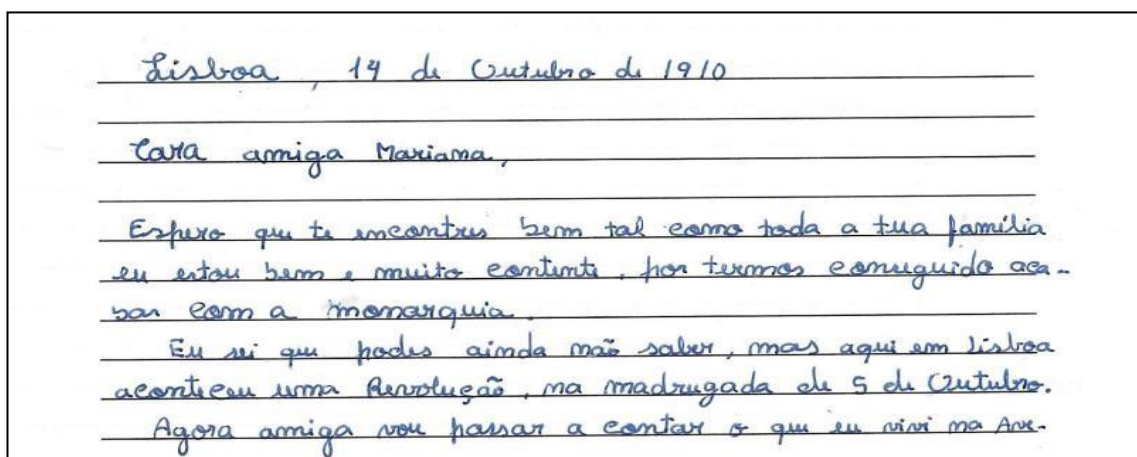 Lisboa, 14 de Outubro de 1910
Cara amiga Mariana,
Espero que te encontres bem tal como toda a tua família
eu estou bem e muito contente, por termos conseguido aca-
bar com a monarquia.
Eu sei que podes ainda não saber, mas aqui em Lisboa
aconteceu uma Revolução, na madrugada de 5 de Outubro.
Agora amiga vou passar a contar o que eu vivi na Ave-